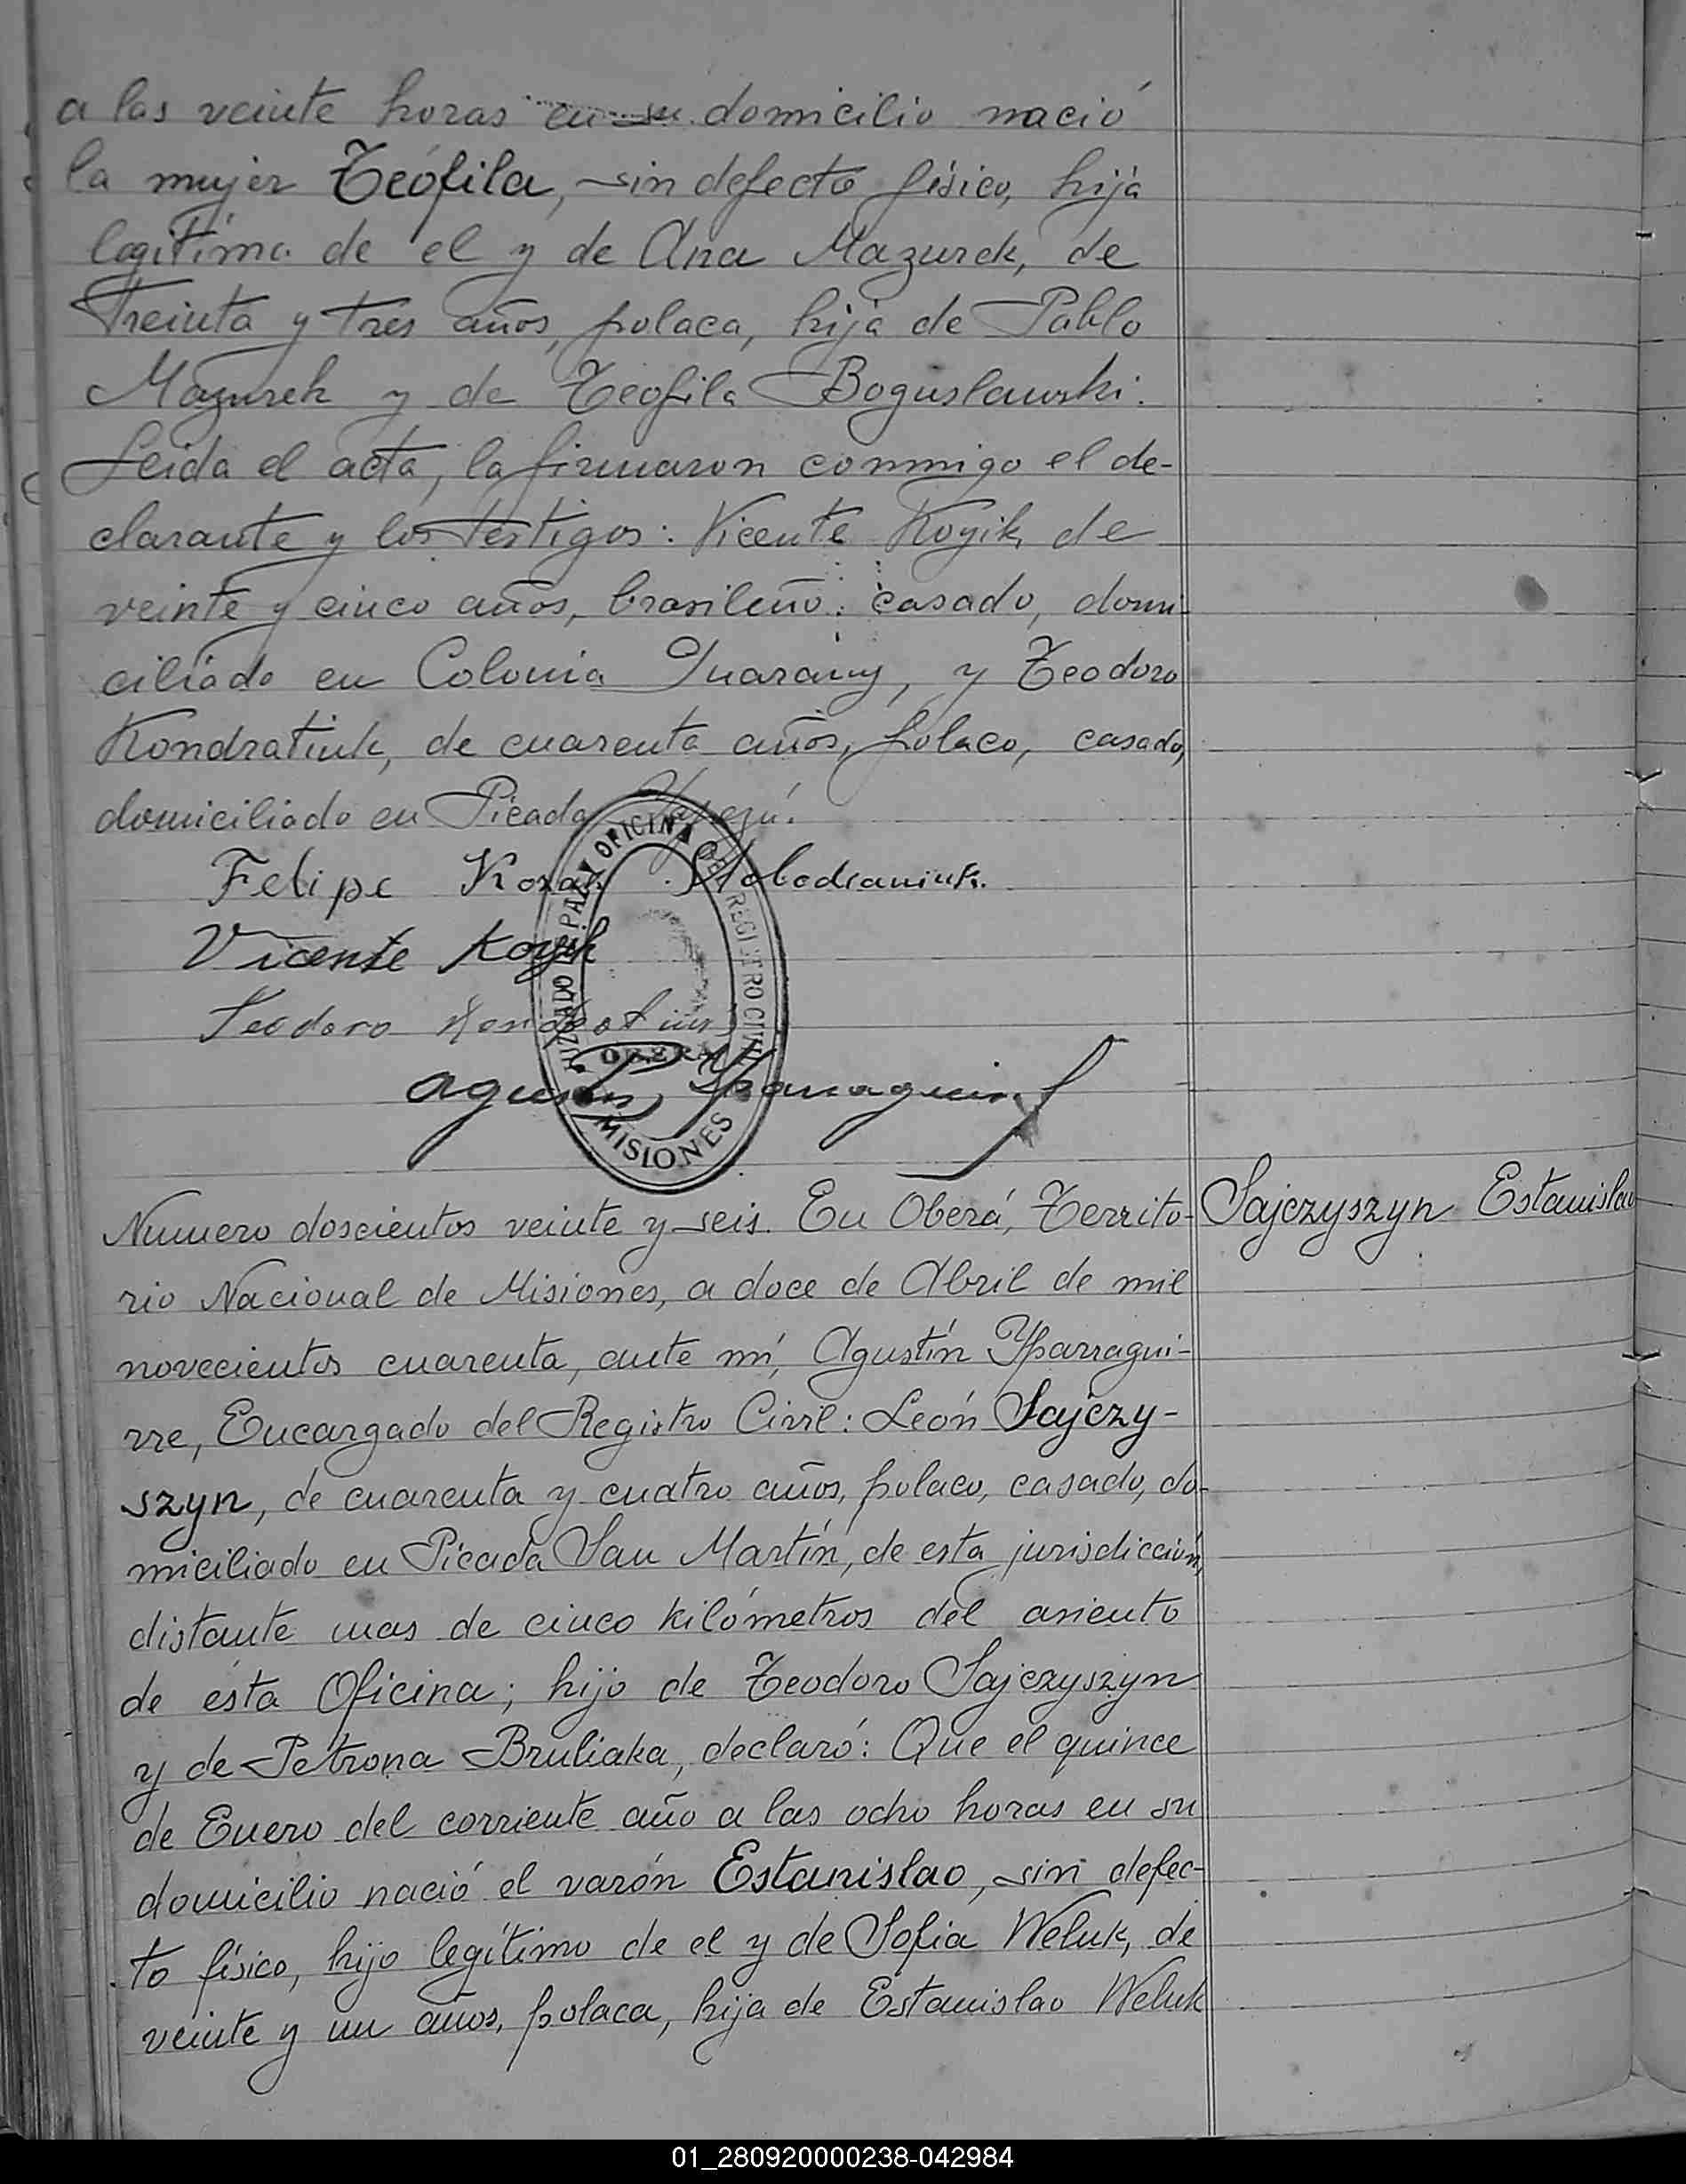 a las veinte horas en su domicilio nació
la mujer Teófila, sin defecto físico, hija
legítima de el y de Ana Mazurek, de
treinta y tres años, polaca, hija de Pablo
Mazurek y de Teofila Boguslawski.
Leida el acta, la firmaron conmigo el de-
clarante y los testigos: Vicente Koyik, de
veinte y cinco años, brasileño, casado, domi-
ciliado en Colonia Guarany, y Teodoro
Kondratiuk, de cuarenta años, polaco, casado,
domiciliado en Picada Yapeyú.
Felipe Slobodraniuk.
Vicente Koyik
Teodoro
JUZGADO DE PAZ Y OFICINA DEL REGISTRO CIVIL
OBERA
MISIONES
Numero doscientos veinte y seis. En Oberá, Territo-
Sajczyszyn Estanislao
rio Nacional de Misiones, a doce de Abril de mil
novecientos cuarenta, ante mí, Agustín Yparragui-
rre, Encargado del Registro Civil: León Sajczy-
szyn, de cuarenta y cuatro años, polaco, casado, do-
miciliado en Picada San Martín, de esta jurisdicción,
distante mas de cinco kilómetros del asiento
de esta Oficina; hijo de Teodoro Sajczyszyn
y de Petrona Bruliaka, declaró: Que el quince
de Enero del corriente año a las ocho horas en su
domicilio nació el varón Estanislao, sin defec-
to físico, hijo legítimo de el y de Sofia Weluk, de
veinte y un años, polaca, hija de Estanislao Weluk
01_280920000238-042984